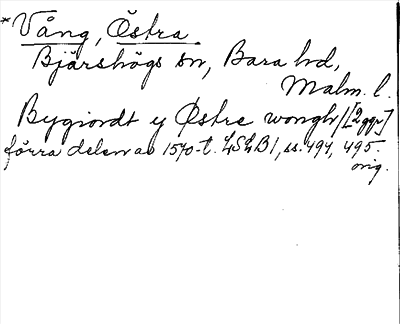 *Vång, Östra.
Bjärshögs sn, Bara hd,
Malm. l.
Bygiordt y Østre wongh/[2 ggr]
förra delen av 1570-t. LSLB1, ss. 494, 495.
orig.